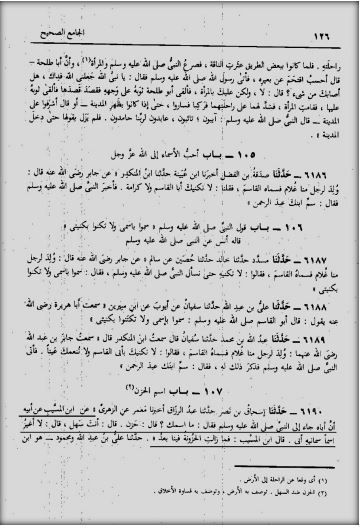 ١٢٦ الجامع الصحيح
راحلته . فلما كانوا ببعض الطريق عثرت الناقة ، فصرع النبي صلى الله عليه وسلم والمرأة (١) ، وأن أبا طلحة –
قال أحسب اقتحم عن بعيره ، فأتى رسول الله صلى الله عليه وسلم فقال : يا نبي الله جعلني الله فداك ، هل
أصابك من شيء ؟ قال : لا ، ولكن عليك بالمرأة ، فألقى أبو طلحة ثوبه على وجهه فقصد قصدها فألقى ثوبه
عليها ، فقامت المرأة ، فشد لهما على راحلتهما فركبا فساروا ، حتى إذا كانوا بظهر المدينة – أو قال أشرفوا على
المدينة – قال النبي صلى الله عليه وسلم : آيبون ، تائبون ، عابدون لربنا حامدون . فلم يزل يقولها حتى دخل
المدينة » .
١٠٥ – باب أحب الأسماء إلى الله عز وجل
٦١٨٦ – حدثنا صدقة بن الفضل أخبرنا ابن عيينة حدثنا ابن المنكدر « عن جابر رضي الله عنه قال :
ولد لرجل منا غلام فسماه القاسم ، فقلنا : لا نكنيك أبا القاسم ولا كرامة . فأخبر النبي صلى الله عليه وسلم
فقال : سم ابنك عبد الرحمن »
١٠٦ – باب قول النبي صلى الله عليه وسلم « سموا باسمي ولا تكنوا بكنيتي »
قاله أنس عن النبي صلى الله عليه وسلم
٦١٨٧ – حدثنا مسدد حدثنا خالد حدثنا حصين عن سالم « عن جابر رضي الله عنه قال : ولد لرجل
منا غلام فسماه القاسم ، فقالوا : لا نكنيه حتى نسأل النبي صلى الله عليه وسلم ، فقال : سموا باسمي ولا تكنوا
بكنيتي »
٦١٨٨ – حدثنا علي بن عبد الله حدثنا سفيان عن أيوب عن ابن سيرين « سمعت أبا هريرة رضي الله
عنه يقول : قال أبو القاسم صلى الله عليه وسلم : سموا باسمي ولا تكتنوا بكنيتي »
٦١٨٩ – حدثنا عبد الله بن محمد حدثنا سفيان قال سمعت ابن المنكدر قال « سمعت جابر بن عبد الله
رضي الله عنهما : ولد لرجل منا غلام فسماه القاسم ، فقالوا : لا نكنيك بأبي القاسم ولا ننعمك عيناً . فأتى
النبي صلى الله عليه وسلم فذكر ذلك له ، فقال : سم ابنك عبد الرحمن »
١٠٧ – باب اسم الحزن (٢)
٦١٩٠ – حدثنا إسحاق بن نصر حدثنا عبد الرزاق أخبرنا معمر عن الزهري « عن ابن المسيب عن أبيه
أن أباه جاء إلى النبي صلى الله عليه وسلم فقال : ما اسمك ؟ قال : حزن . قال : أنت سهل ، قال : لا أغير
اسماً سمانيه أبي . قال ابن المسيب : فما زالت الحزونة فينا بعد » . حدثنا علي بن عبد الله ومحمود – هو ابن
(١) أي وقعا عن الراحلة إلى الأرض .
(٢) الحزن ضد السهل . توصف به الأرض ، وتوصف به قساوة الأخلاق .